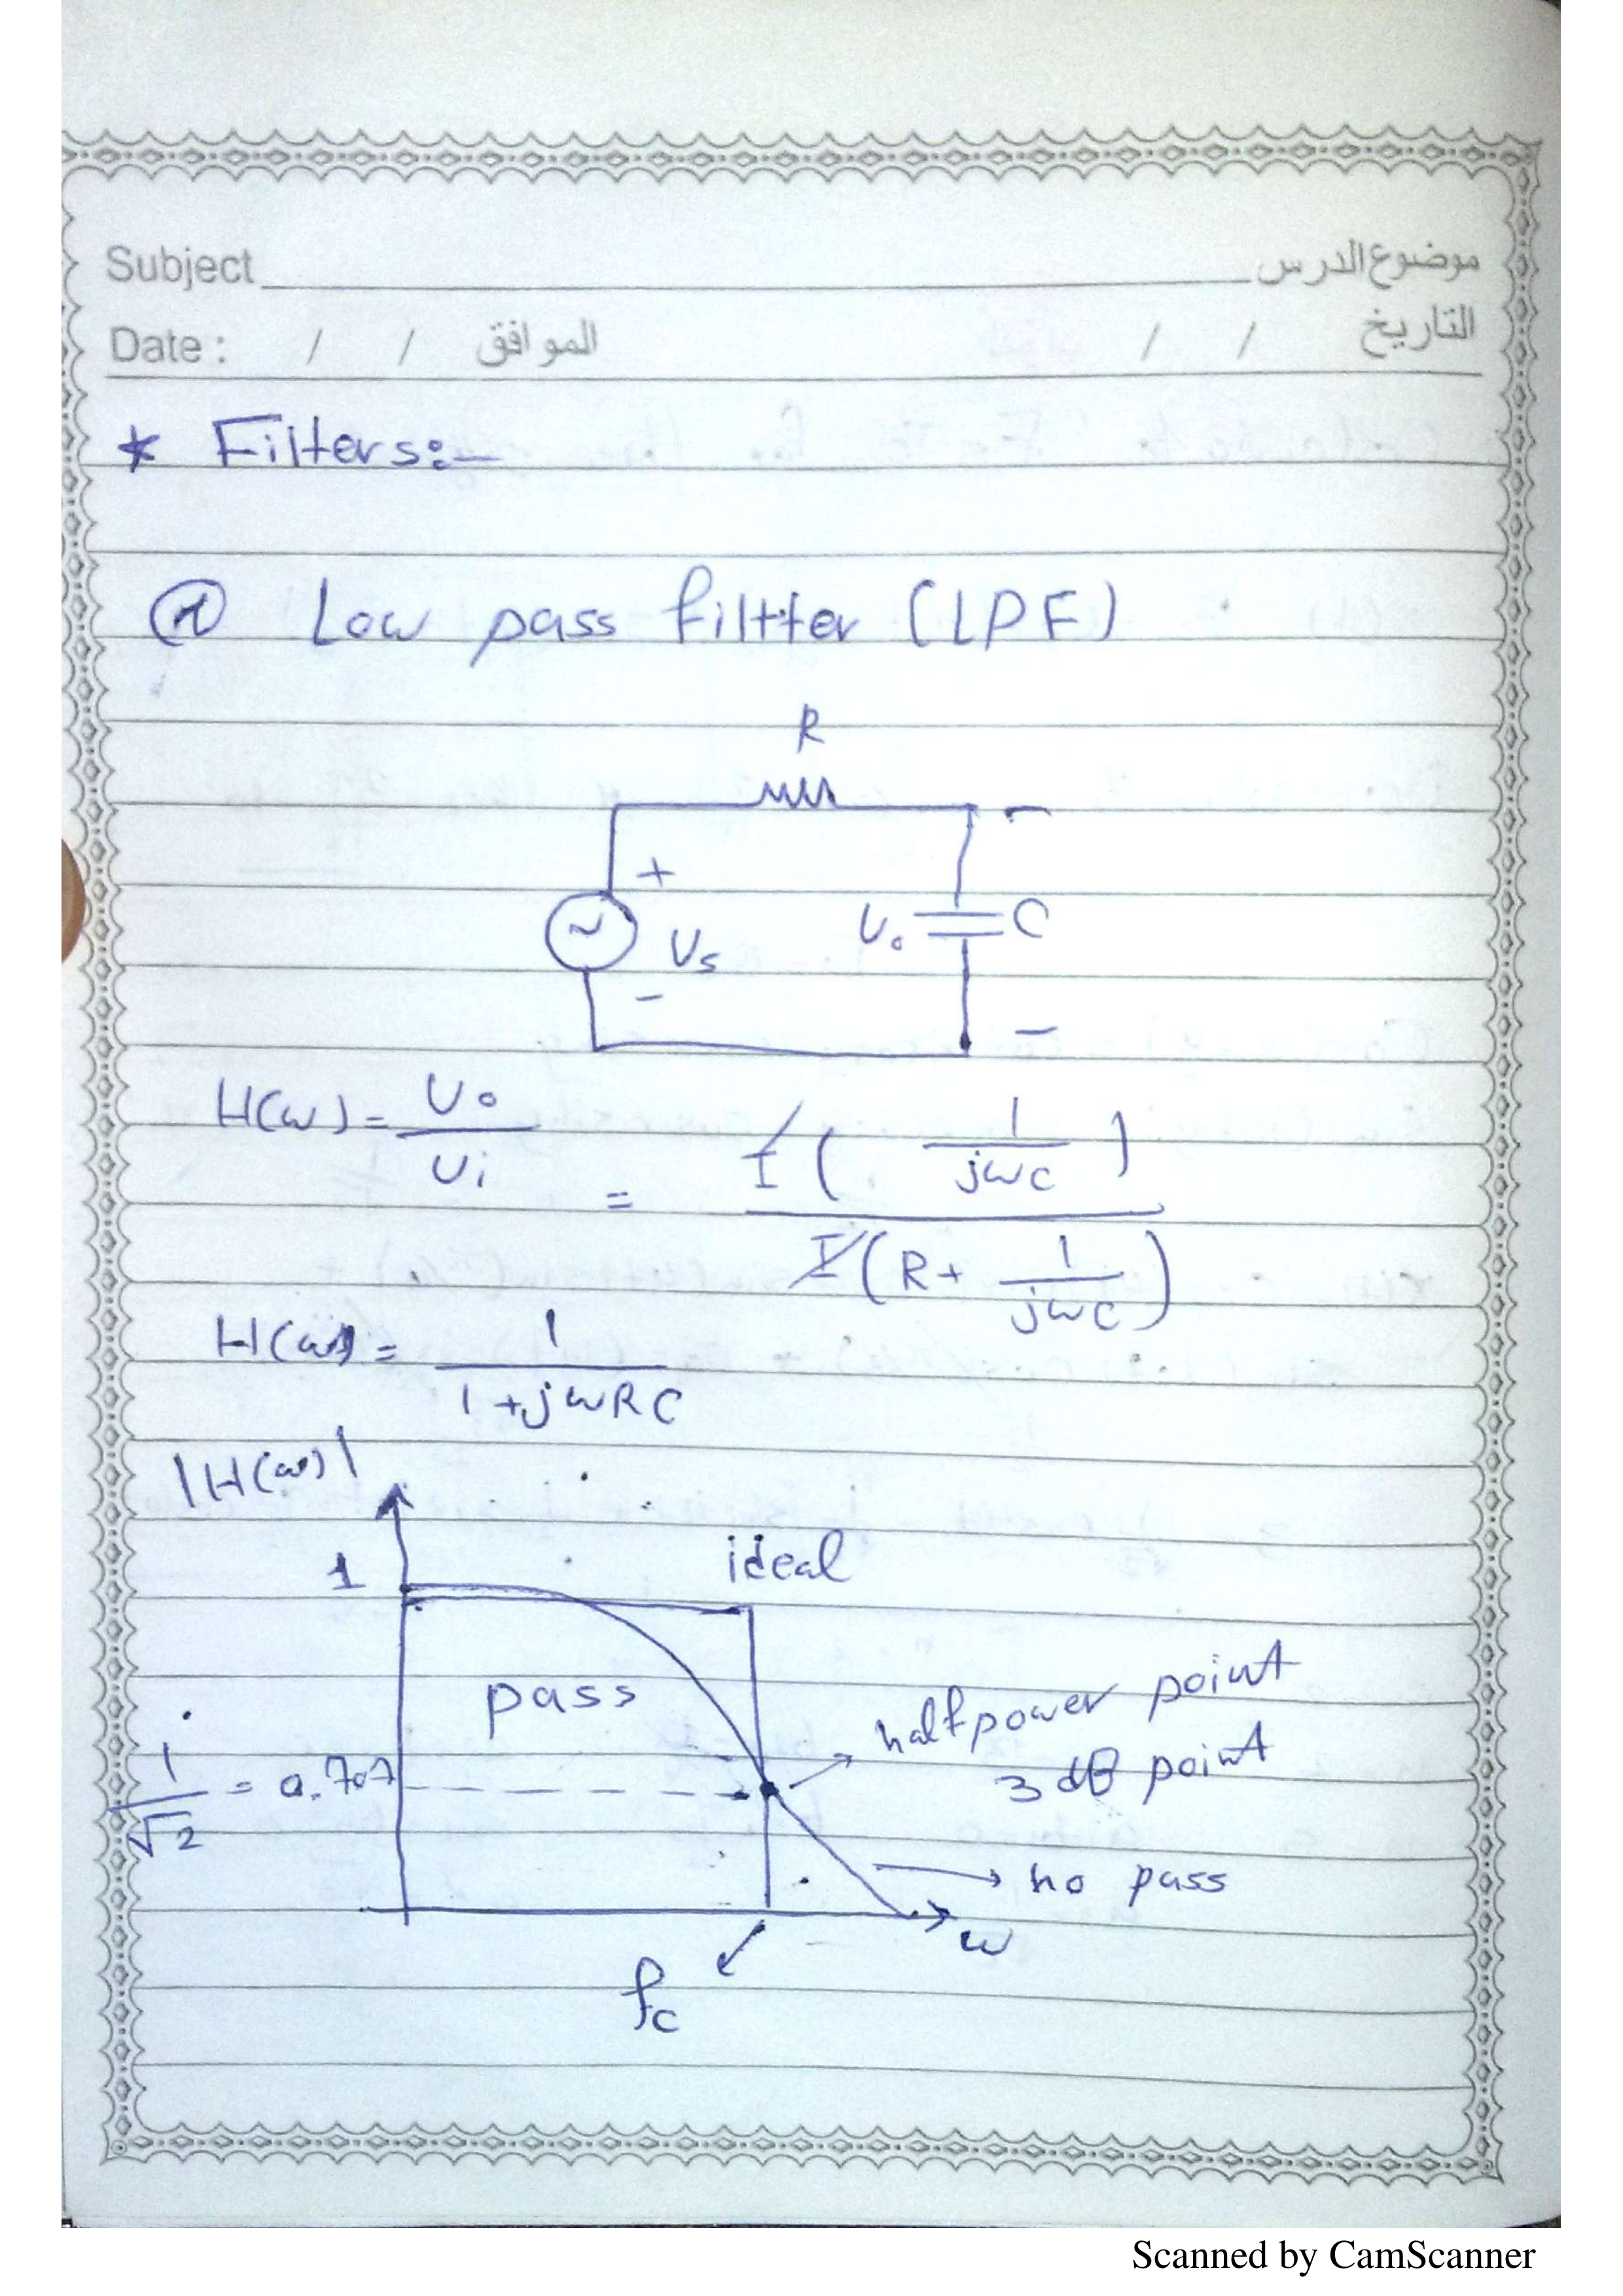 Subject موضوع الدرس
Date : / / الموافق / / التاريخ
* Filters:-
① Low pass filtter (LPF)
R
+ -
Vs Vo C
- -
H(w) = Vo / Vi = I ( 1 / jwc ) / I ( R + 1 / jwc )
H(w) = 1 / 1 + jwRC
|H(w)|
1 ideal
pass
half power point
1 / √2 = 0.707 3 dB point
no pass
w
fc
Scanned by CamScanner